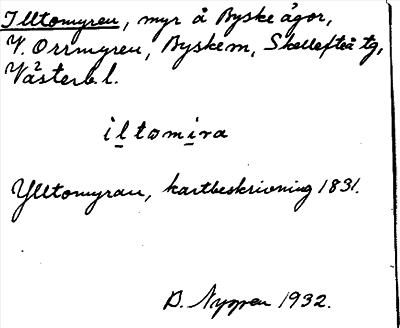 Illtomyren, myr å Byske ägor,
V. Orrmyren, Byskem, Skellefteå tg,
Västerb. l.
iltomira
Ylltomyran, kartbeskrivning 1831.
D. Nyqren 1932.